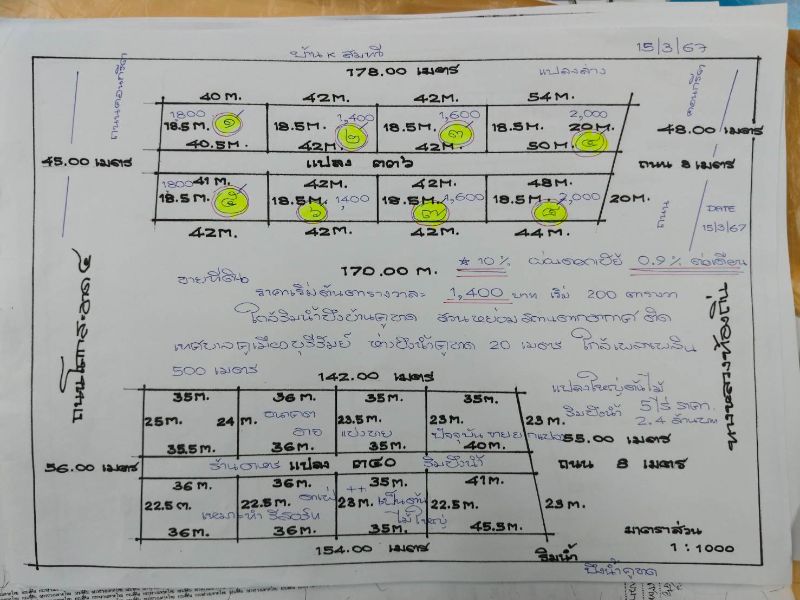 บ้าน
15/3/67
178.00 เมตร
แปลงล่าง
40 M. 42 M. 42 M. 54 M.
1800 1,400 1,600 2,000
18.5 M. ๑ 18.5 M. ๒ 18.5 M. ๓ 18.5 M. 20 M. ๔
40.5 M. 42 M. 42 M. 50 M.
48.00 เมตร
45.00 เมตร
แปลง ๓๓๖
ถนน 8 เมตร
41 M. 42 M. 42 M. 48 M.
1800 1400 1,600 2,000
18.5 M. ๕ 18.5 M. ๖ 18.5 M. ๗ 18.5 M. ๘ 20 M.
42 M. 42 M. 42 M. 44 M.
ถนน
DATE
15/3/67
170.00 M.
* 10% ดอกเบี้ย 0.9% ต่อเดือน
ขายที่ดิน
ราคาเริ่มต้นตารางวาละ 1,400 บาท เริ่ม 200 ตารางวา
ใกล้ริมน้ำบึงบ้านคูขาด สวนหย่อม ติด
เทศบาลคูเมืองบุรีรัมย์ ห่างบึงน้ำคูขาด 20 เมตร
500 เมตร
142.00 เมตร
35 M. 36 M. 35 M. 35 M.
25 M. 24 M. 23.5 M. 23 M. 23 M.
อนาคต
ขาย แบ่งขาย ปัจจุบันขายยกแปลง
35.5 M. 36 M. 35 M. 40 M.
แปลงใหญ่ต้นไม้
ริมบึงน้ำ 5 ไร่ ราคา
2.4 ล้านบาท
55.00 เมตร
56.00 เมตร
ร้านอาหาร แปลง ๓๔๐ ริมบึงน้ำ
ถนน 8 เมตร
36 M. 36 M. 35 M. 41 M.
22.5 M. 22.5 M. 23 M. 22.5 M. 23 M.
กาแฟ ++ เป็นต้น
เหมาะทำ รีสอร์ท ไม้ใหญ่
36 M. 36 M. 35 M. 45.5 M.
154.00 เมตร
มาตราส่วน
1 : 1000
ริมน้ำ
บึงน้ำคูขาด
ทางหลวงท้องถิ่น